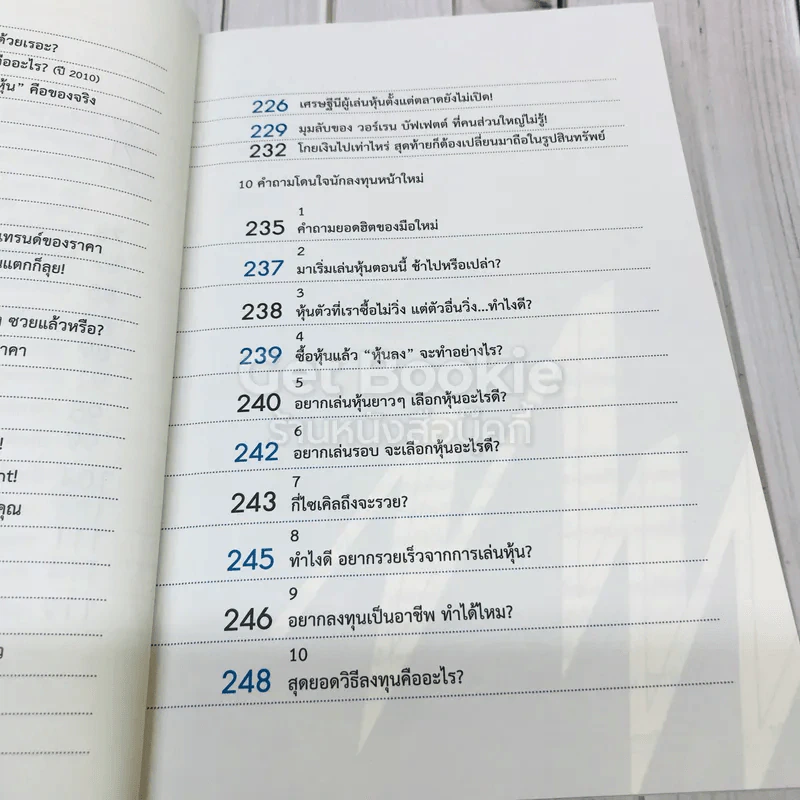 ด้วยเรอะ?
คืออะไร? (ปี 2010)
หุ้น" คือของจริง
เทรนด์ของราคา
แตกก็ลุย!
ซวยแล้วหรือ?
ราคา
nt!
คุณ
226 เศรษฐีนีผู้เล่นหุ้นตั้งแต่ตลาดยังไม่เปิด!
229 มุมลับของ วอร์เรน บัฟเฟตต์ ที่คนส่วนใหญ่ไม่รู้!
232 โกยเงินไปเท่าไหร่ สุดท้ายก็ต้องเปลี่ยนมาถือในรูปสินทรัพย์
10 คำถามโดนใจนักลงทุนหน้าใหม่
1
235 คำถามยอดฮิตของมือใหม่
2
237 มาเริ่มเล่นหุ้นตอนนี้ ช้าไปหรือเปล่า?
3
238 หุ้นตัวที่เราซื้อไม่วิ่ง แต่ตัวอื่นวิ่ง...ทำไงดี?
4
239 ซื้อหุ้นแล้ว "หุ้นลง" จะทำอย่างไร?
Get Bookie
5
240 อยากเล่นหุ้นยาวๆ เลือกหุ้นอะไรดี?
ร้านหนังสือบุ๊คกี้
6
242 อยากเล่นรอบ จะเลือกหุ้นอะไรดี?
7
243 กี่ไซเคิลถึงจะรวย?
8
245 ทำไงดี อยากรวยเร็วจากการเล่นหุ้น?
9
246 อยากลงทุนเป็นอาชีพ ทำได้ไหม?
10
248 สุดยอดวิธีลงทุนคืออะไร?